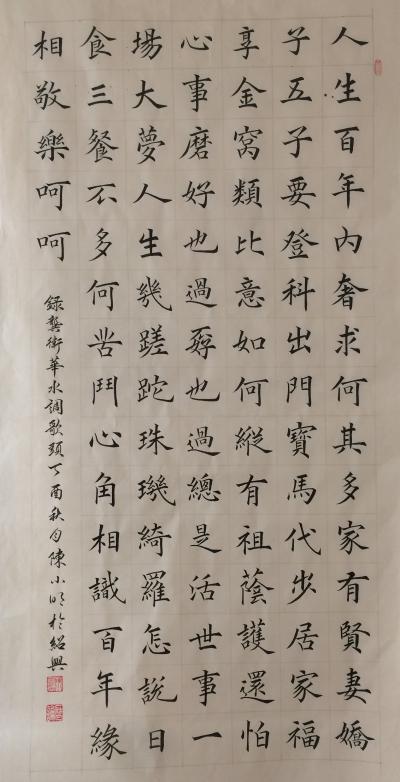 人生百年内奢求何其多家有賢妻嬌
子五子要登科出門寶馬代步居家福
享金窩類比意如何縱有祖蔭護還怕
心事磨好也過孬也過總是活世事一
場大夢人生幾蹉跎珠璣綺羅怎説日
食三餐不多何苦鬥心角相識百年緣
相敬樂呵呵
録龔衛華水調歌頭丁酉秋陳小明於紹興